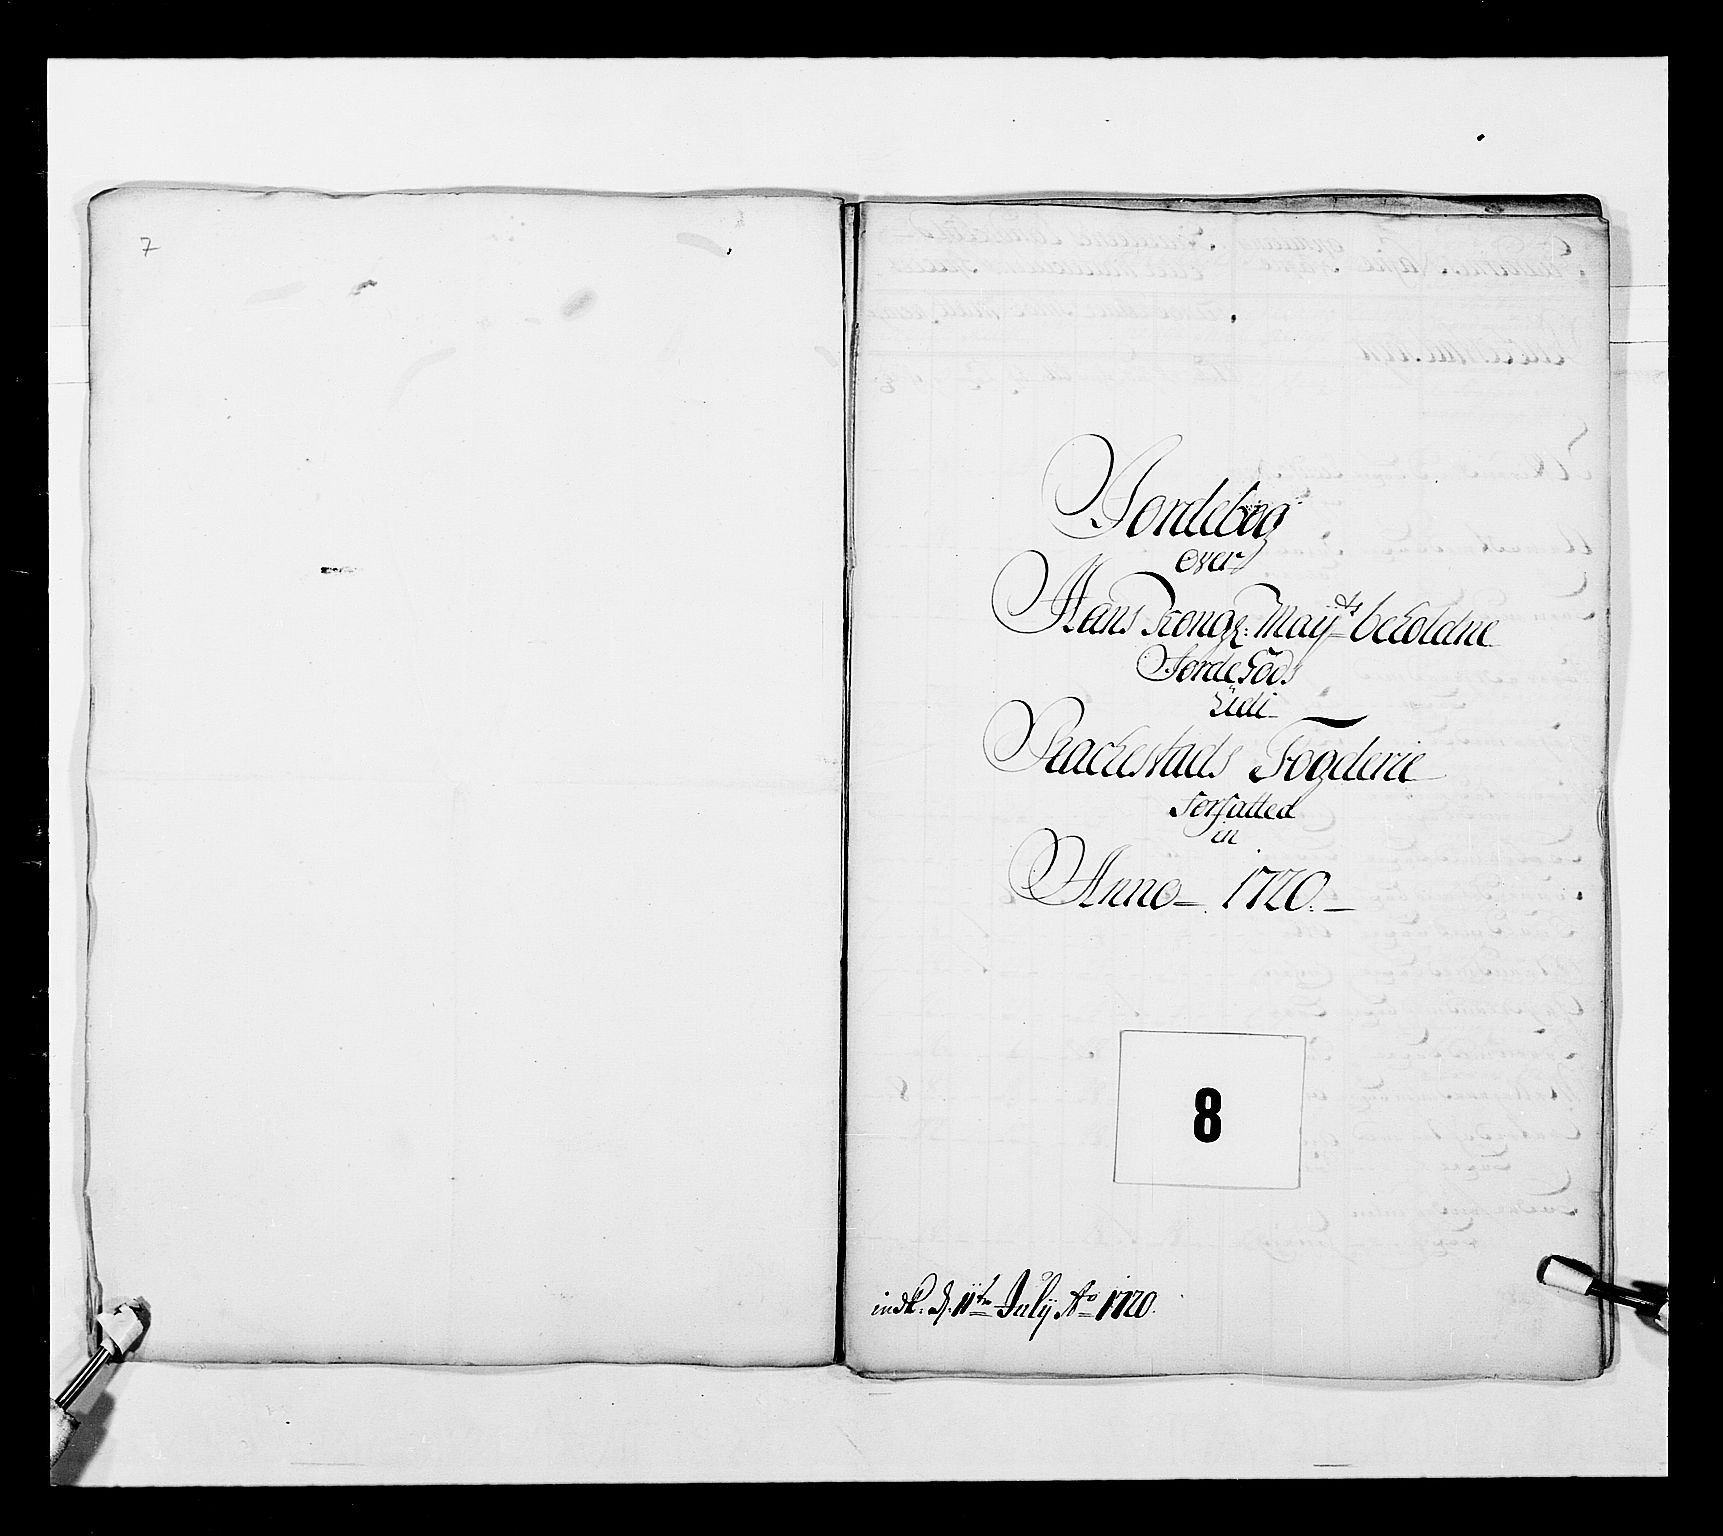 7
Jordebog
over
Hans Kongl: Mayᵗˢ beholdne
JordeGods
Udi
Rackestads Fogderie
forfatted
in
Anno – 1720. –
8
indk: d. 11ᵗᵉ July Aº 1720.